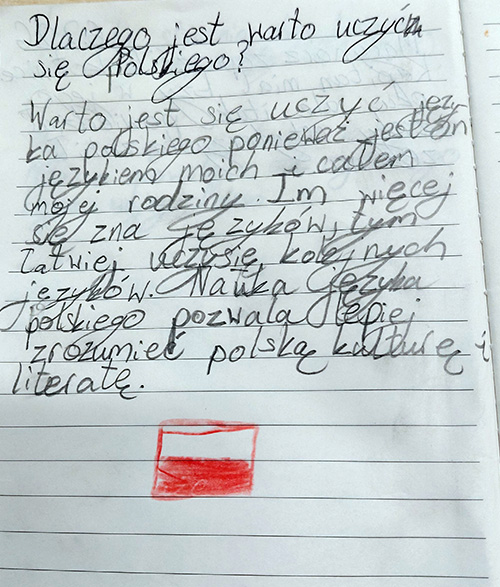 Dlaczego jest warto uczyć
się Polskiego?
Warto jest się uczyć języ
ka polskiego ponieważ jest on
językiem moich i całem
mojej rodziny. Im więcej
się zna języków, tym
łatwiej uczysię kolejnych
języków. Nauka języka
polskiego pozwala lepiej
zrozumieć polską kulturę i
literatę.